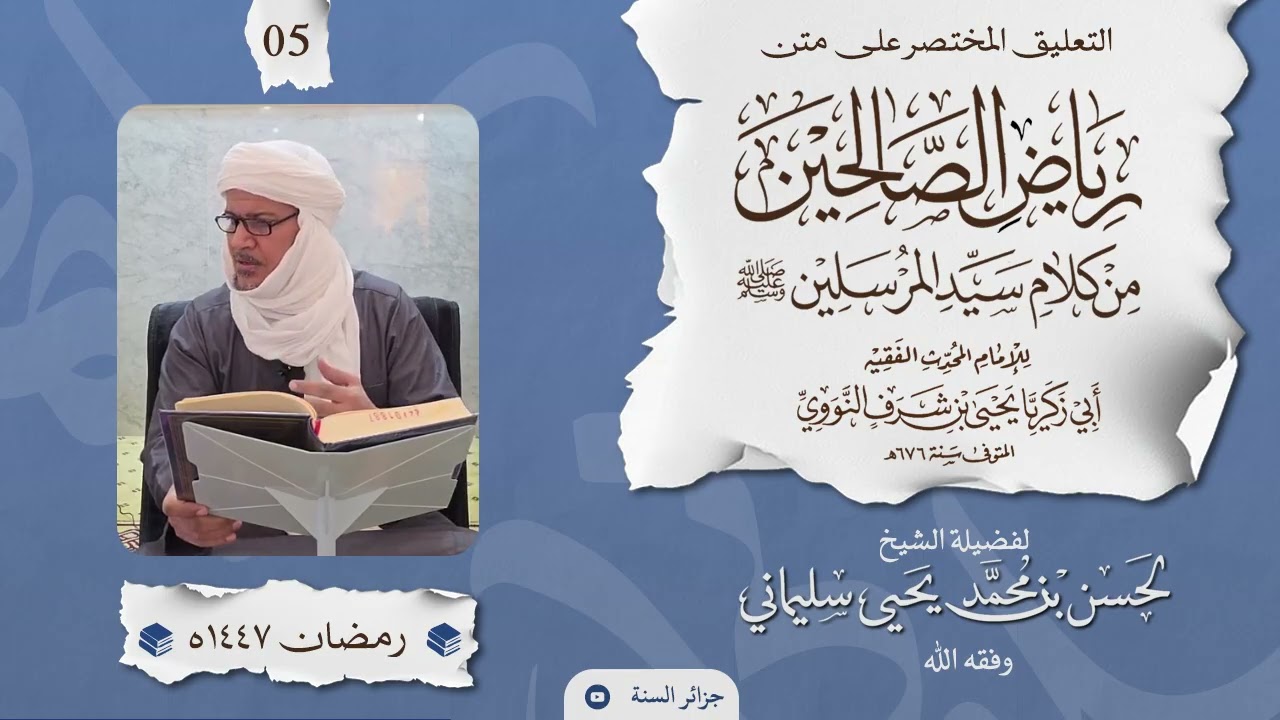 05
التعليق المختصر على متن
رِيَاضِ الصَّالِحِيْنَ
مِنْ كَلَامِ سَيِّدِ المُرْسَلِيْن ﷺ
لِلْإِمَامِ المُحَدِّثِ الفَقِيْهِ
أَبِي زَكَرِيَّا يَحْيَى بْنِ شَرَفٍ النَّوَوِيِّ
المتوفى سَنَة ٦٧٦هـ
لفضيلة الشيخ
لحَسَن بْن مُحَمَّد يَحيى سليماني
وفقه الله
رمضان ١٤٤٧ه
جزائر السنة